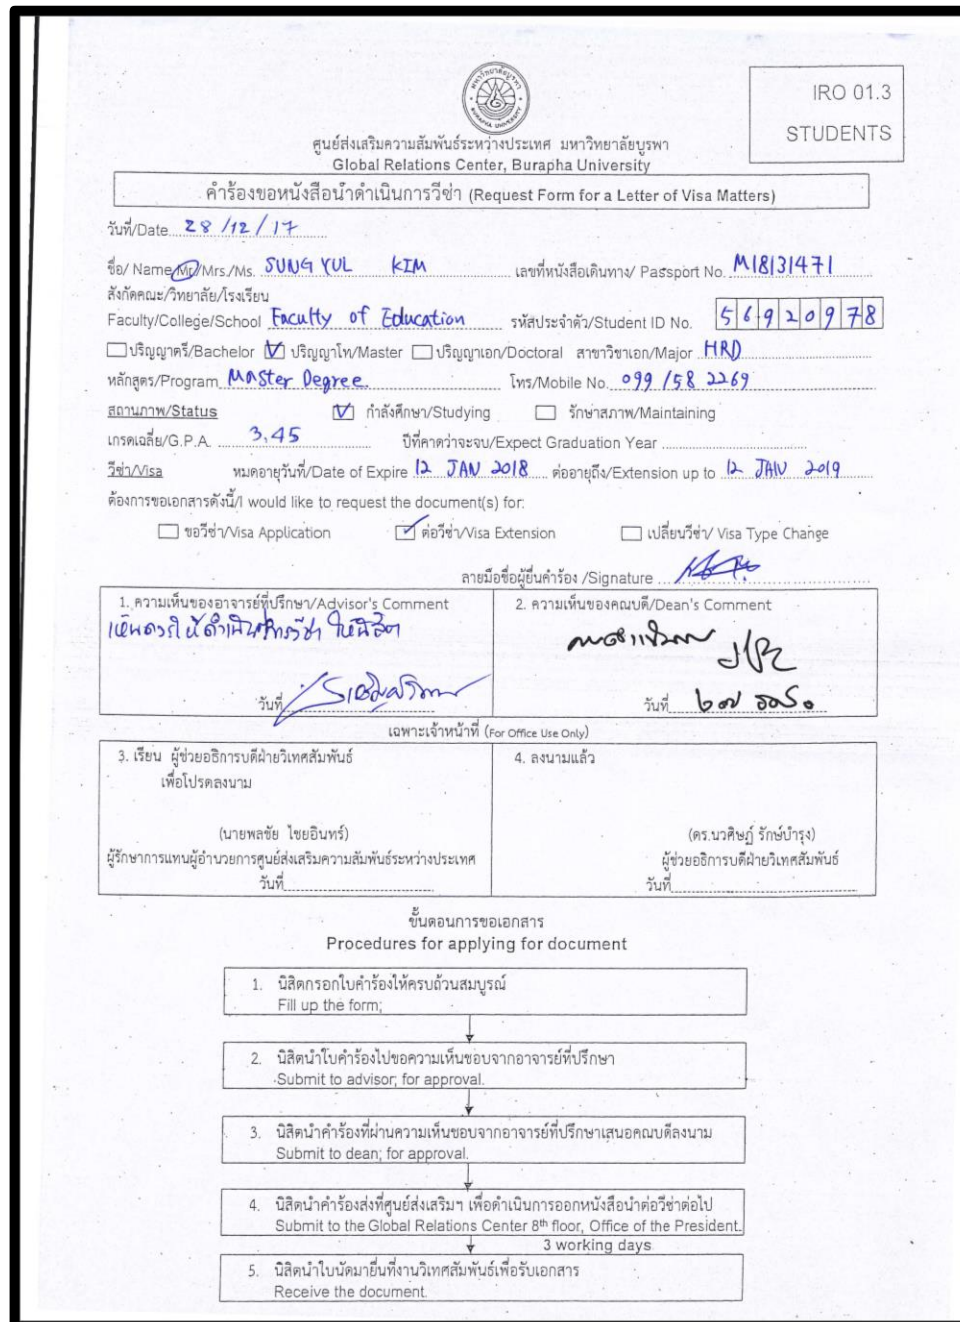 มหาวิทยาลัยบูรพา
BURAPHA UNIVERSITY
IRO 01.3
STUDENTS
ศูนย์ส่งเสริมความสัมพันธ์ระหว่างประเทศ มหาวิทยาลัยบูรพา
Global Relations Center, Burapha University
คำร้องขอหนังสือนำดำเนินการวีซ่า (Request Form for a Letter of Visa Matters)
วันที่/Date 28/12/17
ชื่อ/ Name/Mr./Mrs./Ms. SUNG YUL KIM เลขที่หนังสือเดินทาง/ Passport No. M18131471
สังกัดคณะ/วิทยาลัย/โรงเรียน
Faculty/College/School Faculty of Education รหัสประจำตัว/Student ID No. 56920978
ปริญญาตรี/Bachelor ปริญญาโท/Master ปริญญาเอก/Doctoral สาขาวิชาเอก/Major HRD
หลักสูตร/Program Master Degree. โทร/Mobile No. 099 158 2269
สถานภาพ/Status กำลังศึกษา/Studying รักษาสภาพ/Maintaining
เกรดเฉลี่ย/G.P.A. 3.45 ปีที่คาดว่าจะจบ/Expect Graduation Year
วีซ่า/Visa หมดอายุวันที่/Date of Expire 12 JAN 2018 ต่ออายุถึง/Extension up to 12 JAN 2019
ต้องการขอเอกสารดังนี้/I would like to request the document(s) for:
ขอวีซ่า/Visa Application ต่อวีซ่า/Visa Extension เปลี่ยนวีซ่า/ Visa Type Change
ลายมือชื่อผู้ยื่นคำร้อง /Signature
1. ความเห็นของอาจารย์ที่ปรึกษา/Advisor's Comment
เห็นควรให้ดำเนินการวีซ่า ให้นิสิต
วันที่
2. ความเห็นของคณบดี/Dean's Comment
วันที่ ๒๗ ธค ๖๐
เฉพาะเจ้าหน้าที่ (For Office Use Only)
3. เรียน ผู้ช่วยอธิการบดีฝ่ายวิเทศสัมพันธ์
เพื่อโปรดลงนาม
(นายพลชัย ไชยอินทร์)
ผู้รักษาการแทนผู้อำนวยการศูนย์ส่งเสริมความสัมพันธ์ระหว่างประเทศ
วันที่
4. ลงนามแล้ว
(ดร.นวศิษฏ์ รักษ์บำรุง)
ผู้ช่วยอธิการบดีฝ่ายวิเทศสัมพันธ์
วันที่
ขั้นตอนการขอเอกสาร
Procedures for applying for document
1. นิสิตกรอกใบคำร้องให้ครบถ้วนสมบูรณ์
Fill up the form;
2. นิสิตนำใบคำร้องไปขอความเห็นชอบจากอาจารย์ที่ปรึกษา
Submit to advisor; for approval.
3. นิสิตนำคำร้องที่ผ่านความเห็นชอบจากอาจารย์ที่ปรึกษาเสนอคณบดีลงนาม
Submit to dean; for approval.
4. นิสิตนำคำร้องส่งที่ศูนย์ส่งเสริมฯ เพื่อดำเนินการออกหนังสือนำต่อวีซ่าต่อไป
Submit to the Global Relations Center 8th floor, Office of the President.
3 working days
5. นิสิตนำใบนัดมายื่นที่งานวิเทศสัมพันธ์เพื่อรับเอกสาร
Receive the document.